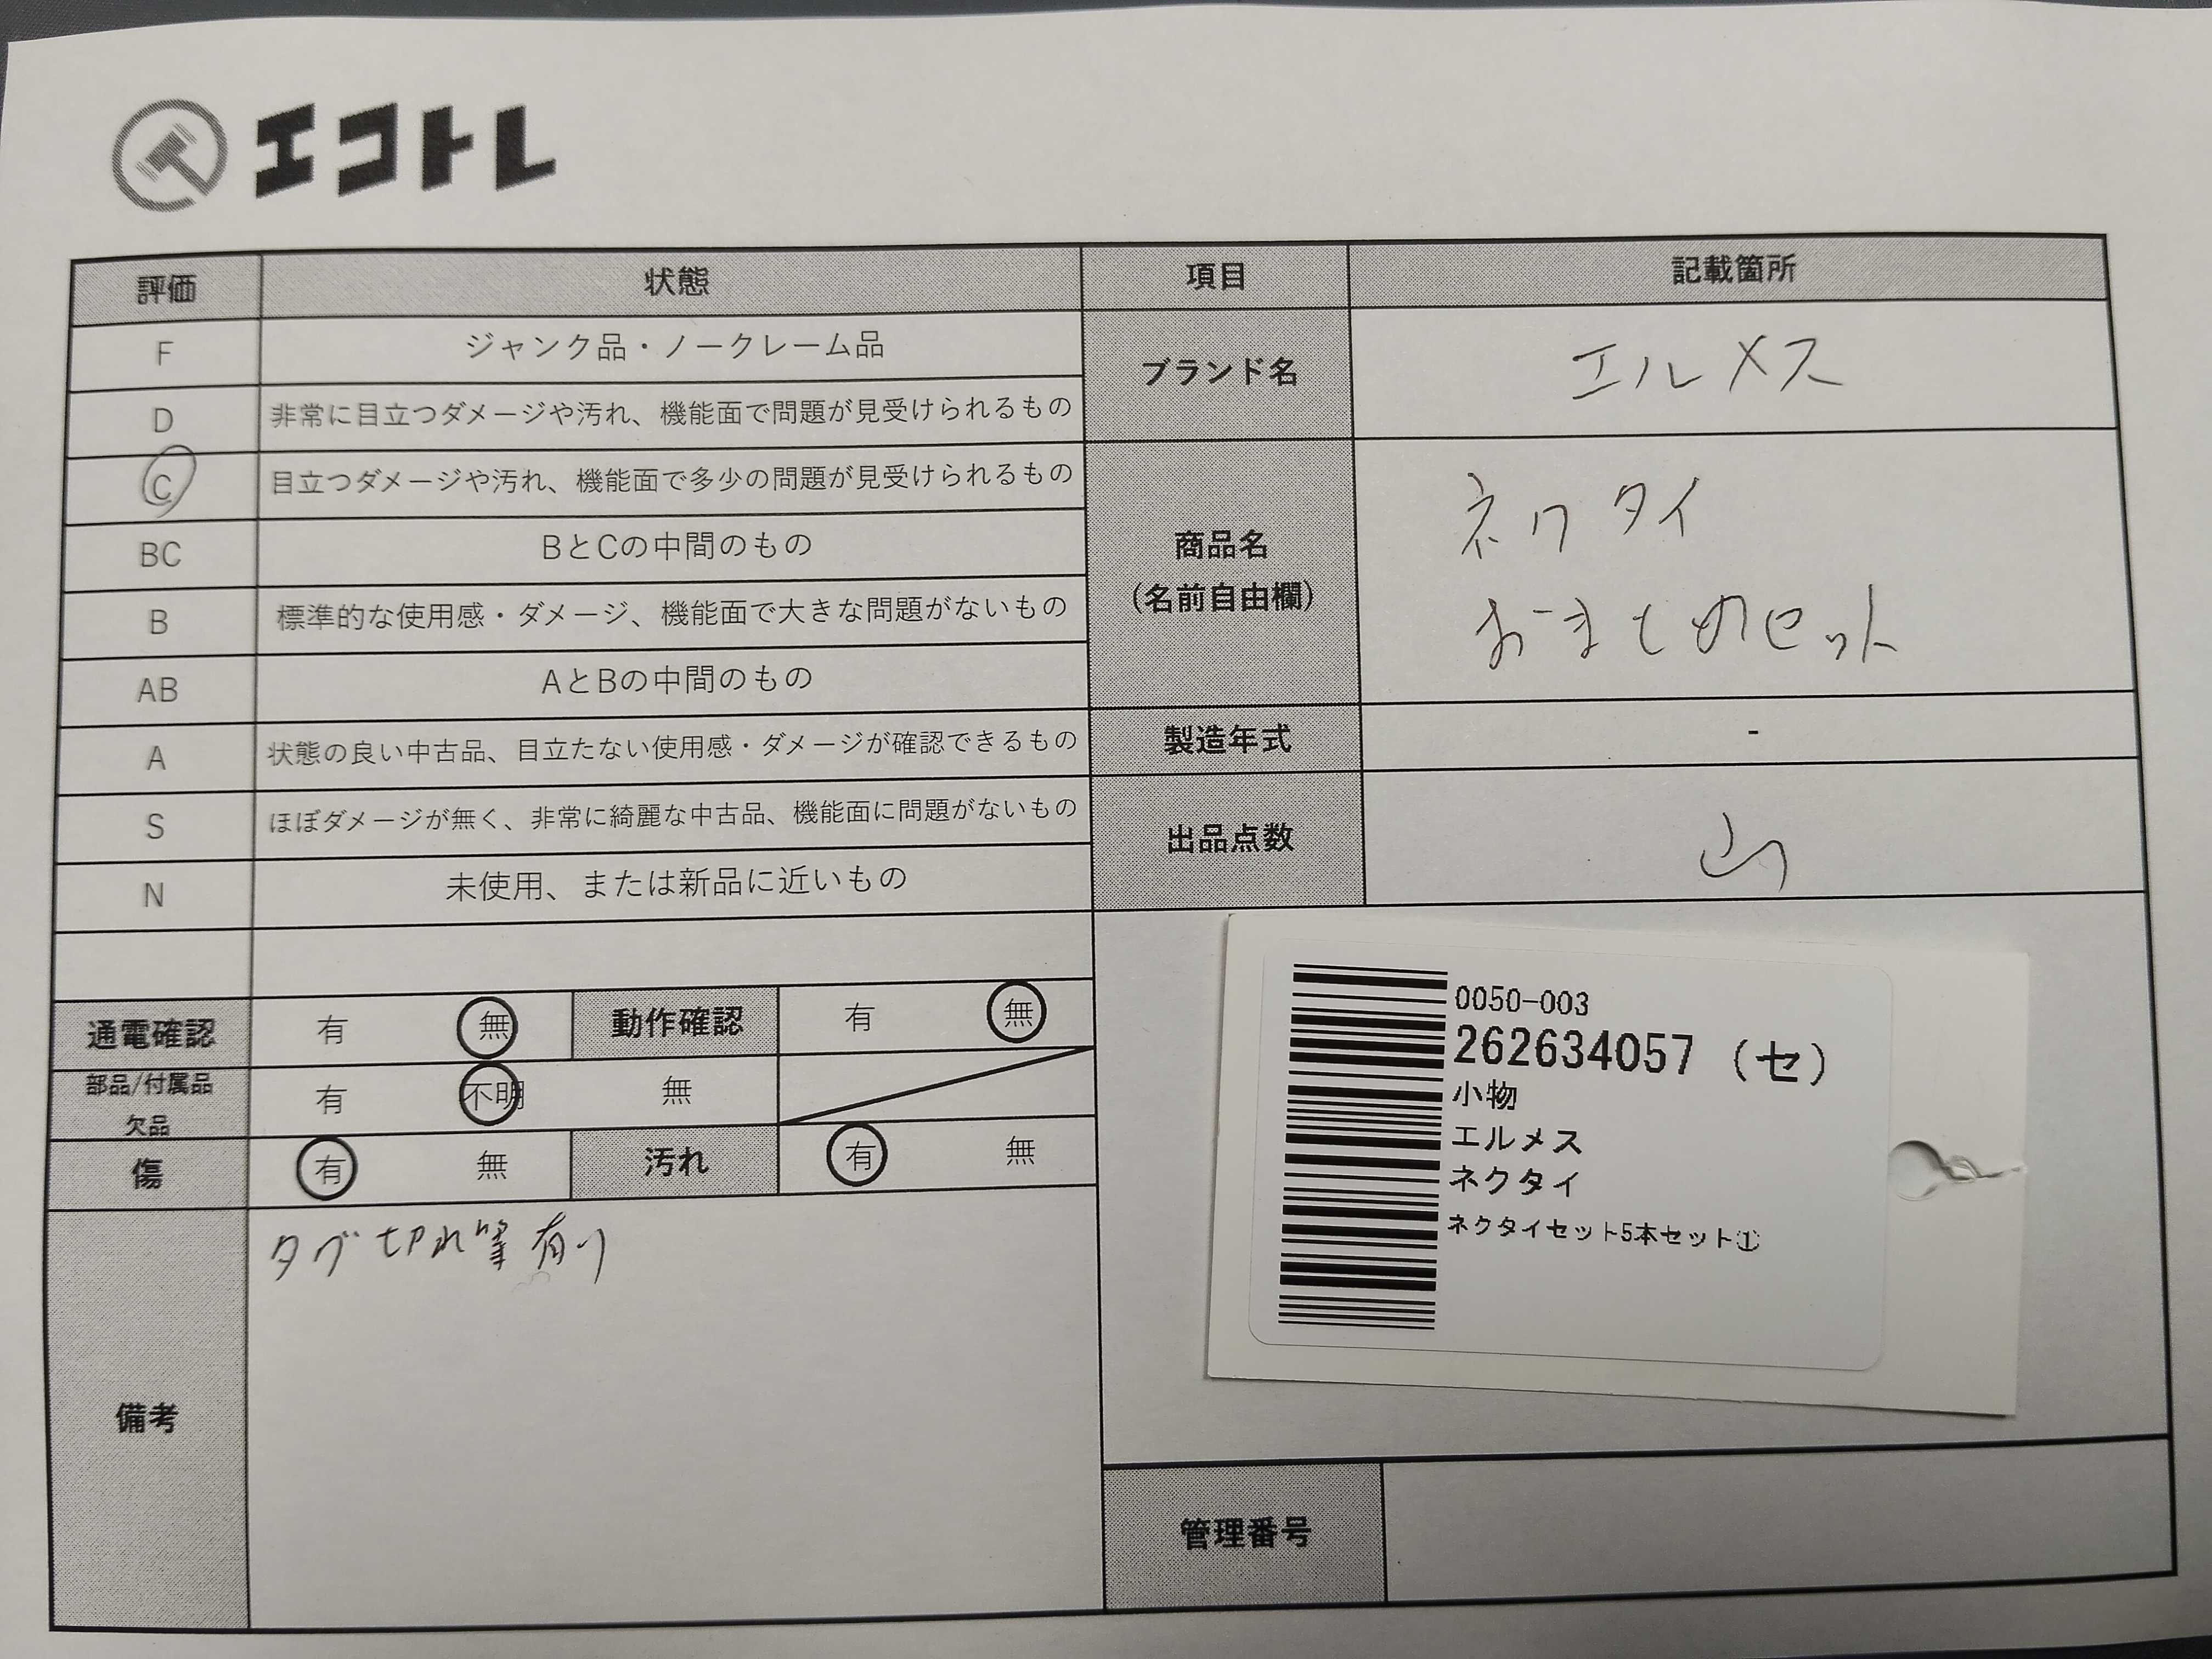 エコトレ
評価 状態 項目 記載箇所
F ジャンク品・ノークレーム品
D 非常に目立つダメージや汚れ、機能面で問題が見受けられるもの
C 目立つダメージや汚れ、機能面で多少の問題が見受けられるもの
BC BとCの中間のもの
B 標準的な使用感・ダメージ、機能面で大きな問題がないもの
AB AとBの中間のもの
A 状態の良い中古品、目立たない使用感・ダメージが確認できるもの
S ほぼダメージが無く、非常に綺麗な中古品、機能面に問題がないもの
N 未使用、または新品に近いもの
ブランド名 エルメス
商品名
(名前自由欄)
ネクタイ
おまとめセット
製造年式 -
出品点数 山
通電確認 有 無 動作確認 有 無
部品/付属品
欠品
有 不明 無
傷 有 無 汚れ 有 無
備考 タグ切れ等有り
0050-003
262634057 (セ)
小物
エルメス
ネクタイ
ネクタイセット5本セット①
管理番号